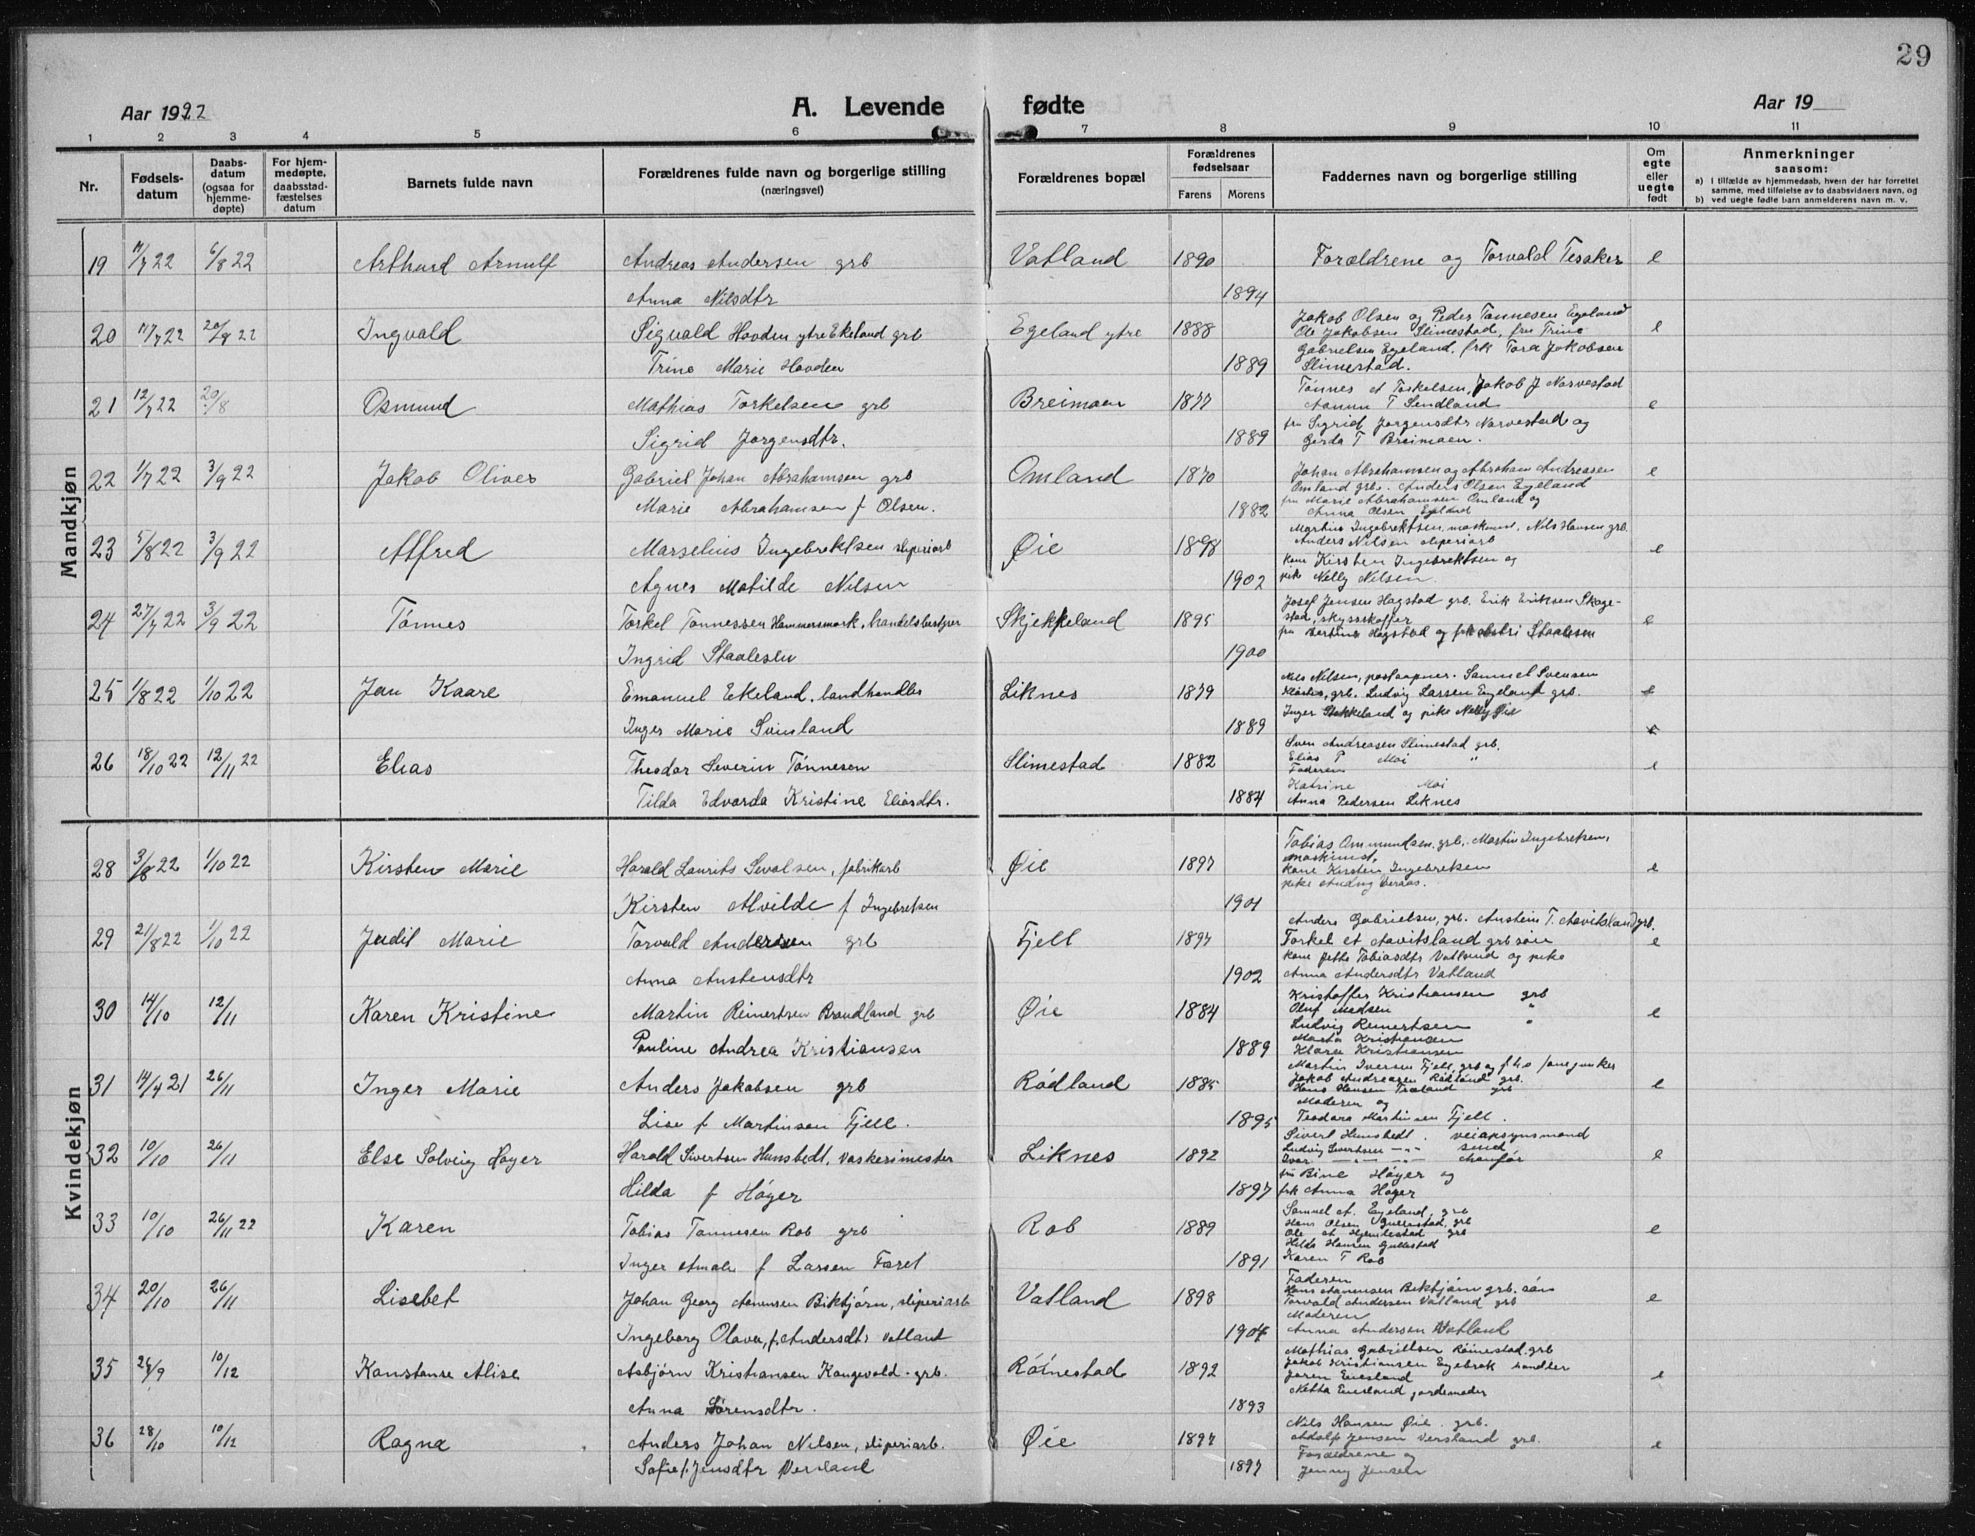 29
Aar 1922
A. Levende fødte
Aar 19
1 2 3 4 5 6 7 8 9 10 11
Nr.
Fødsels-
datum
Daabs-
datum
(ogsaa for
hjemme-
døpte)
For hjem-
medøpte,
daabsstad-
fæstelses
datum
Barnets fulde navn
Forældrenes fulde navn og borgerlige stilling
(næringsvei)
Forældrenes bopæl
Forældrenes
fødselsaar
Farens Morens
Faddernes navn og borgerlige stilling
Om
egte
eller
uegte
født
Anmerkninger
saasom:
a) i tilfælde av hjemmedaab, hvem der har forrettet
samme, med tilføielse av to daabsvidners navn, og
b) ved uegte fødte barn anmelderens navn m. v.
Mandkjøn
19 11/7 22 6/8 22 Arthurd Arnulf Andreas Andersen grb Vatland 1890 Forældrene og Torvald Tesaker e
Anna Nilsdtr 1894
20 17/7 22 20/8 22 Ingvald Sigvald Hovden ytre Ekeland grb Egeland ytre 1888 Jakob Olsen og Peder Tønnesen Egeland e
Ole Jakobsen Slimestad, fru Trine
Trine Marie Hovden 1889 Gabrielsen Egeland, frk Tora Jakobsen
Slimestad.
21 12/7 22 20/8 Osmund Mathias Torkelsen grb Breimoen 1877 Tønnes A Torkelsen, Jakob J Narvestad e
T Sendland
Sigrid Jørgensdtr. 1889 fru Sigrid Jørgensdtr Narvestad og
Gerda T Breimoen.
22 1/7 22 3/9 22 Jakob Oliver Gabriel Johan Abrahamsen grb Omland 1870 Johan Abrahamsen og Abraham Andreasen e
Omland grb. Anders Olsen Egeland
Marie Abrahamsen f Olsen. 1882 fru Marie Abrahamsen Omland og
Anna Olsen Egeland
23 5/8 22 3/9 22 Alfred Marselius Ingebrektsen sliperiarb Øie 1898 Martin Ingebrektsen, maskinist, Nils Hansen grb. e
Anders Nilsen sliperiarb
Agnes Matilde Nilsen 1902 kone Kirsten Ingebrektsen og
pike Nelly Nilsen.
24 27/7 22 3/9 22 Tønnes Torkel Tønnessen Hammersmark, handelsbestyrer Skjekkeland 1895 Josef Jensen Hagstad grb. Erik Eriksen Skage- e
stad, skysskaffer
Ingrid Staalesen 1900 fru Bertine Hagstad og frk Astri Staalesen
25 1/8 22 1/10 22 Jan Kaare Emanuel Eekeland, landhandler Liknes 1879 Nils Nilsen, postaapner. Samuel Svensen e
grb. Ludvig Larsen Egeland grb.
Inger Marie Svinland 1889 Inger Stakkeland og pike Nelly Øie
26 18/10 22 12/11 22 Elias Theodor Severin Tønnesen Slimestad 1882 Sven Andreasen Slimestad grb. e
Elias P Moi "
Faderen
Tilda Edvarda Kristine Eliasdtr. 1884 Katrine Moi
Anna Pedersen Liknes
Kvindekjøn
28 3/8 22 1/10 22 Kirsten Marie Harald Laurits Sivalsen, fabrikarb Øie 1897 Tobias Ommundsen, grb, Martin Ingebretsen, e
maskinist,
kone Kirsten Ingebretsen
Kirsten Alvilde f Ingebretsen 1901 pike Andrig Veraas.
29 21/8 22 1/10 22 Judit Marie Torvald Andersen grb Fjell 1897 Anders Gabrielsen, grb. Austein T. Aavitsland grb. e
Torkel A Aavitsland grb søn
kone Jethe Tobiasdtr Vatland og pike
Anna Austensdtr 1902 Anna Andersdtr Vatland
30 14/10 12/11 Karen Kristine Martin Reinertsen Braudland grb Øie 1884 Kristoffer Kristiansen grb e
Oluf Madsen "
Ludvig Reinertsen "
Pauline Andrea Kristiansen 1889 Marta Kristiansen
Klara Kristiansen
31 14/4 21 26/11 Inger Marie Anders Jakobsen grb Rødland 1885 Martin Iversen Fjell, grb og
Jakob Andreasen Rødland grb. e
Hans Hansen Træland grb
Moderen og
Lise f Martinsen Fjell. 1895 Teodora Martinsen Fjell.
32 10/10 26/11 Else Solveig Høyer Harald Sivertsen Hunstedt, vaskerimester Liknes 1892 Sivert Hunstedt. veiopsynsmand
Ludvig Sivertsen — " — smed e
Ivar — " — chaufør
fru Bine Høyer og
Hilda f Høyer 1897 frk Anna Høyer
33 10/10 26/11 22 Karen Tobias Tønnesen Rob grb Rob 1889 Samuel A. Egeland, grb
Hans Olsen Gullestad, grb e
Ole A Hjemlestad grb
Hilda Hansen Gullestad
Inger Amalie f Larsen Faret 1891 Karen T Rob
34 20/10 26/11 Lisebet Johan Georg Aanensen Bikbjørn, sliperiarb Vatland 1898 Faderen
Hans Aanensen Bikbjørn grb. søn e
Torvald Andersen Vatland grb
Moderen
Ingeborg Olava, f. Andersdtr Vatland 1904 Anna Andersen Vatland
35 24/9 10/12 Konstanse Alise Asbjørn Kristiansen Kongevold. grb. Røinestad 1892 Mathias Gabrielsen Røinestad grb
Jakob Kristiansen Egebrok handler
Jøren Eiesland e
Netta Eiesland, jordemoder
Anna Sørensdtr. 1893
36 28/10 10/12 Ragna Anders Johan Nilsen, sliperiarb. Øie 1897 Nils Hansen Øie grb.
Adolf Jensen Versland grb. e
Forældrene og
Sofie f. Jensdtr Versland 1897 Jenny Jensen